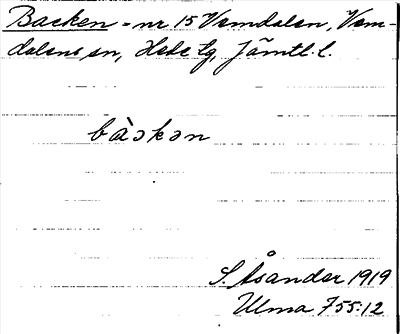 Backen = nr 15 Vemdalen, Vem-
dalens sn, Hede tg, Jämtl. l.
bàəkən
S. Åsander 1919
Ulma 755:12